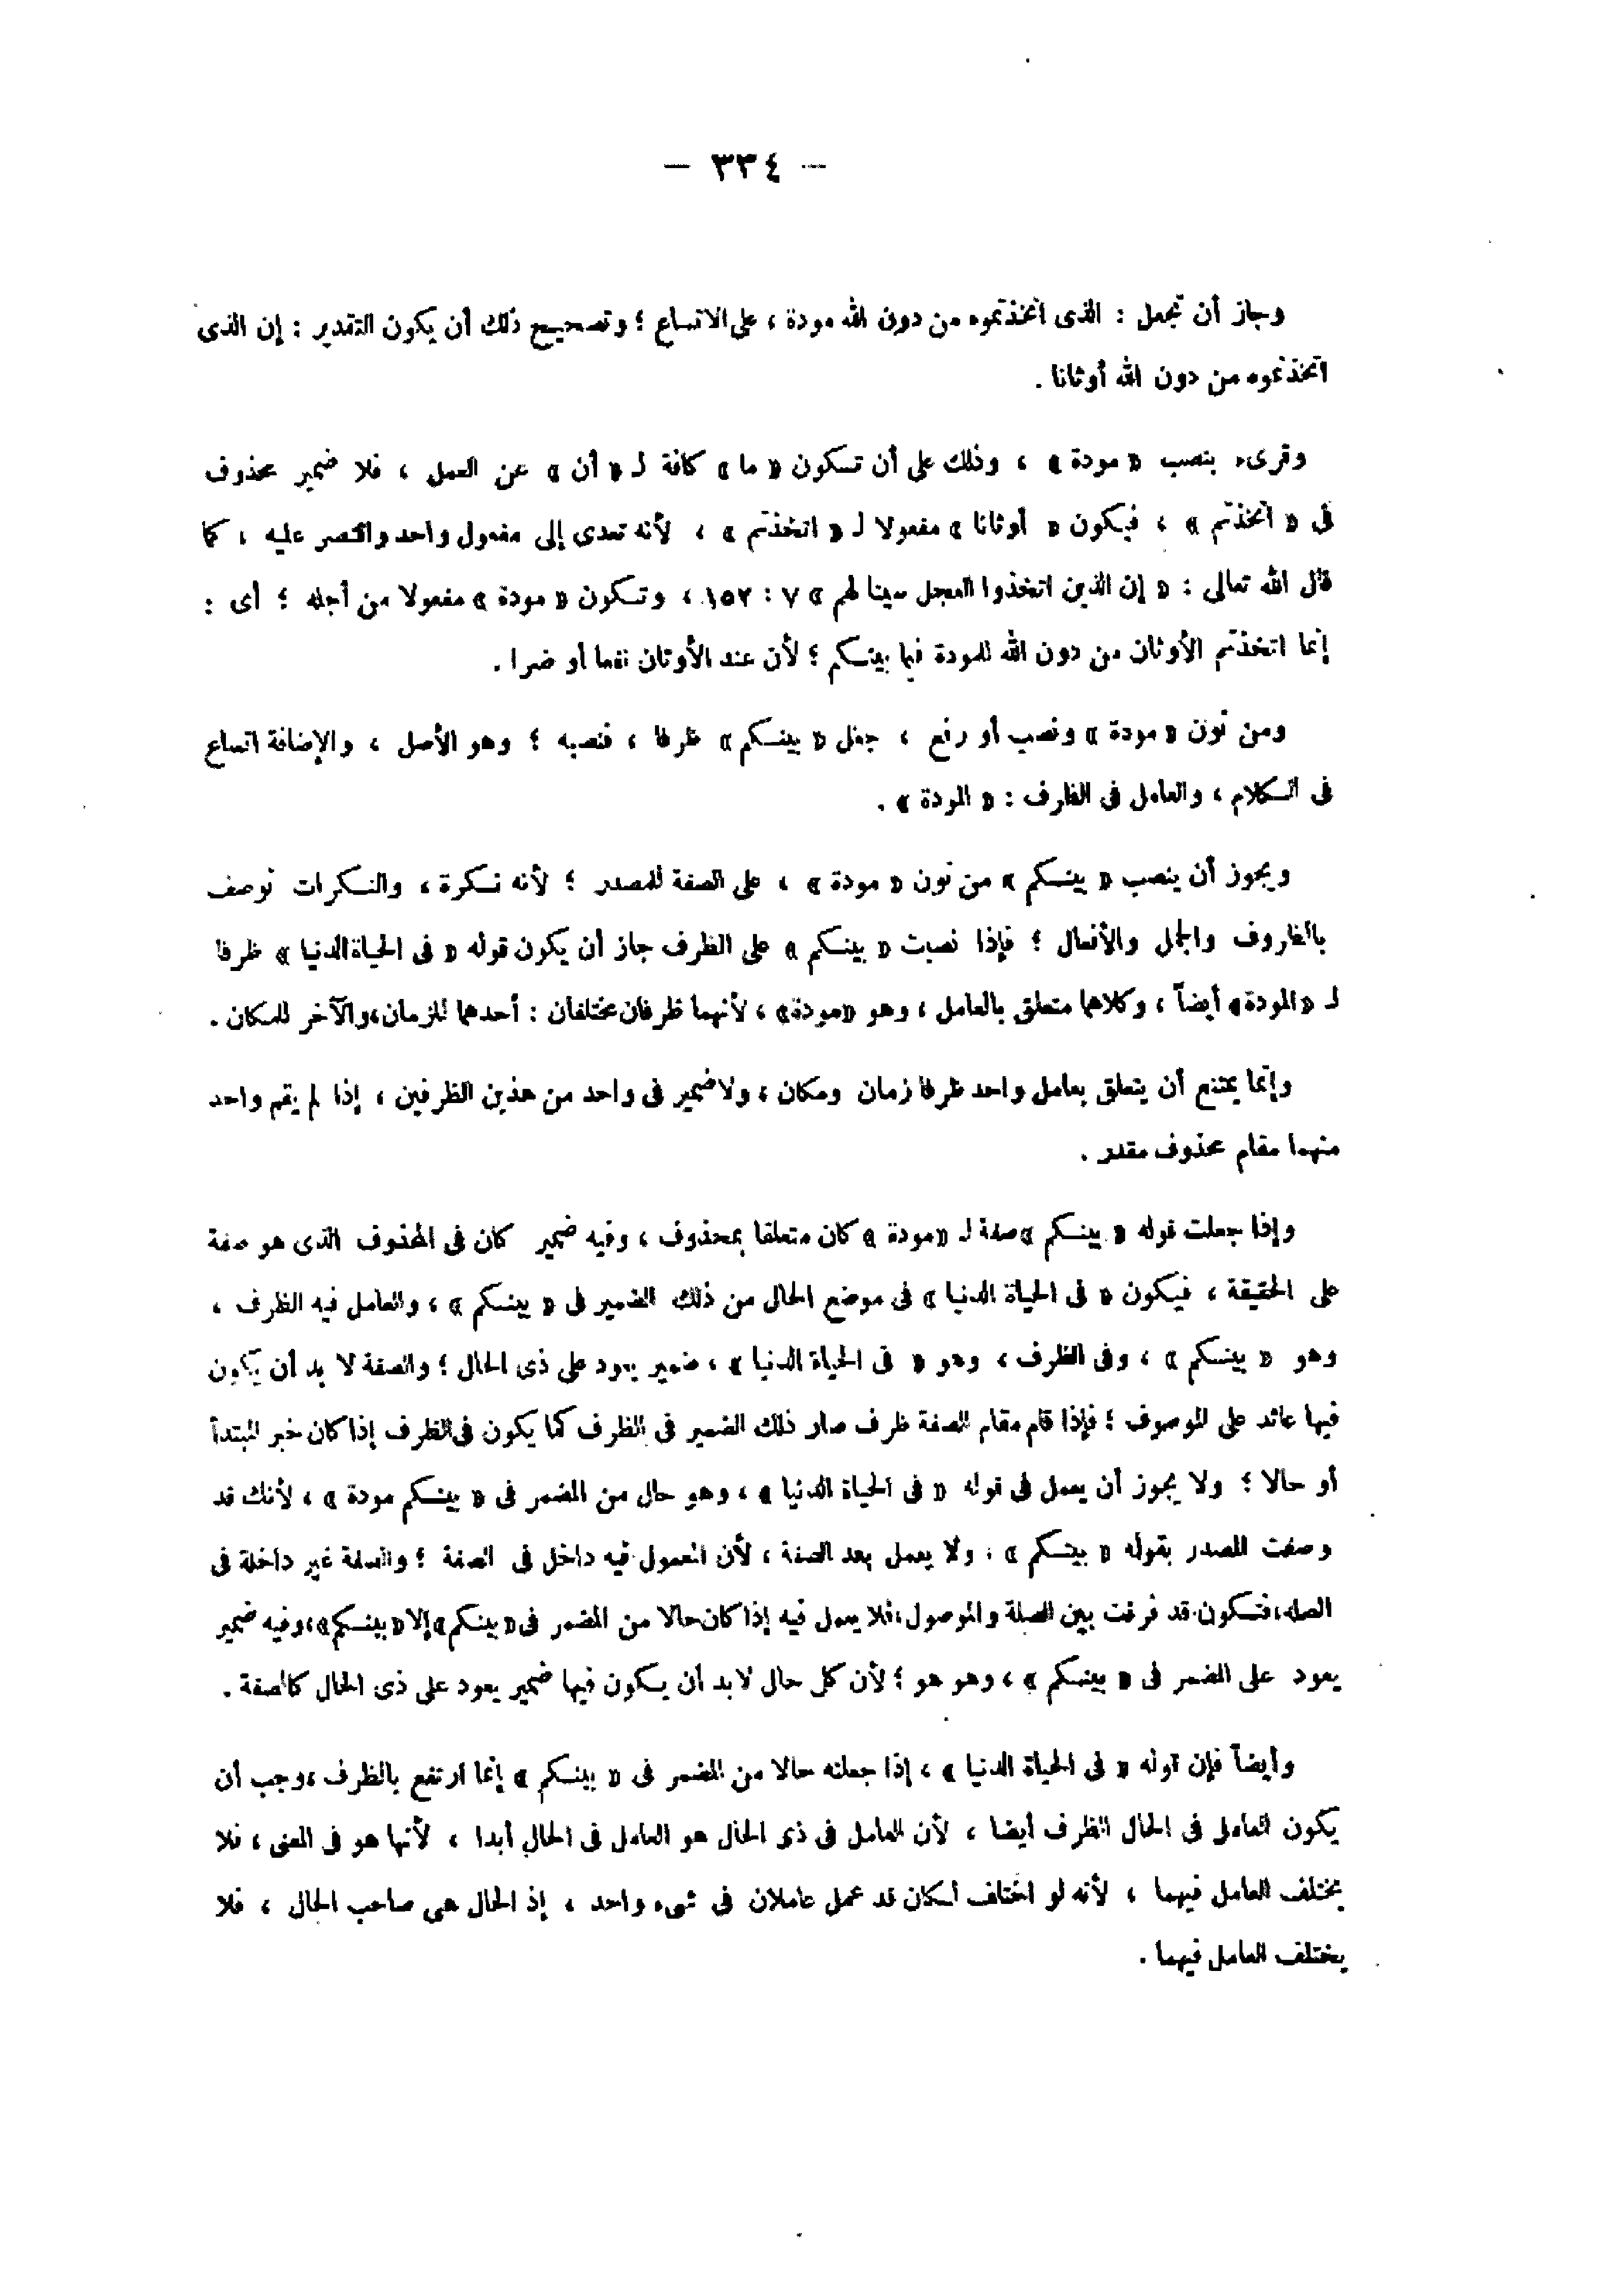 — ٣٣٤ —
وجاز أن تجعل : الذى اتخذتموه من دون الله مودة ، على الاتساع ؛ وتصحيح ذلك أن يكون التقدير : إن الذى
اتخذتموه من دون الله أوثانا .
وقرىء بنصب « مودة » ، وذلك على أن تكون « ما » كافة لـ « أن » عن العمل ، فلا ضمير محذوف
فى « اتخذتم » ، فيكون « أوثانا » مفعولا لـ « اتخذتم » ، لأنه تعدى إلى مفعول واحد واقتصر عليه ، كما
قال الله تعالى : « إن الذين اتخذوا العجل سينالهم » ٧ : ١٥٢ ، وتكون « مودة » مفعولا من أجله ؛ أى :
إنما اتخذتم الأوثان من دون الله للمودة فيما بينكم ؛ لأن عند الأوثان نفعا أو ضرا .
ومن نون « مودة » ونصب أو رفع ، جعل « بينكم » ظرفا ، فنصبه ؛ وهو الأصل ، والإضافة اتساع
فى الكلام ، والعامل فى الظرف : « المودة » .
ويجوز أن ينصب « بينكم » من نون « مودة » ، على الصفة للمصدر ؛ لأنه نكرة ، والنكرات توصف
بالظروف والجمل والأفعال ؛ فإذا نصبت « بينكم » على الظرف جاز أن يكون قوله « فى الحياة الدنيا » ظرفا
لـ « المودة » أيضاً ، وكلاهما متعلق بالعامل ، وهو « مودة » ، لأنهما ظرفان مختلفان : أحدهما للزمان ، والآخر للمكان .
وإنما يمتنع أن يتعلق بعامل واحد ظرفا زمان ومكان ، ولا ضمير فى واحد من هذين الظرفين ، إذا لم يقم واحد
منهما مقام محذوف مقدر .
وإذا جعلت قوله « بينكم » صفة لـ « مودة » كان متعلقا بمحذوف ، وفيه ضمير كان فى المحذوف الذى هو صفة
على الحقيقة ، فيكون « فى الحياة الدنيا » فى موضع الحال من ذلك الضمير فى « بينكم » ، والعامل فيه الظرف ،
وهو « بينكم » ، وفى الظرف ، وهو « فى الحياة الدنيا » ، ضمير يعود على ذى الحال ؛ والصفة لا بد أن يكون
فيها عائد على الموصوف ؛ فإذا قام مقام الصفة ظرف صار ذلك الضمير فى الظرف كما يكون فى الظرف إذا كان خبر المبتدأ
أو حالا ؛ ولا يجوز أن يعمل فى قوله « فى الحياة الدنيا » ، وهو حال من المضمر فى « بينكم مودة » ، لأنك قد
وصفت المصدر بقوله « بينكم » ، ولا يعمل بعد الصفة ، لأن المعمول فيه داخل فى الصفة ؛ والصفة غير داخلة فى
الصلة ، فتكون قد فرقت بين الصلة والموصول ، فلا يعمل فيه إذا كان حالا من المضمر فى « بينكم » إلا « بينكم » ، وفيه ضمير
يعود على المضمر فى « بينكم » ، وهو هو ؛ لأن كل حال لابد أن يكون فيها ضمير يعود على ذى الحال كالصفة .
وأيضاً فإن قوله « فى الحياة الدنيا » ، إذا جعلته حالا من المضمر فى « بينكم » إنما ارتفع بالظرف ، وجب أن
يكون العامل فى الحال الظرف أيضا ، لأن العامل فى ذى الحال هو العامل فى الحال أبدا ، لأنها هو فى المعنى ، فلا
يختلف العامل فيهما ، لأنه لو اختلف لكان قد عمل عاملان فى شىء واحد ، إذ الحال هى صاحب الحال ، فلا
يختلف العامل فيهما .